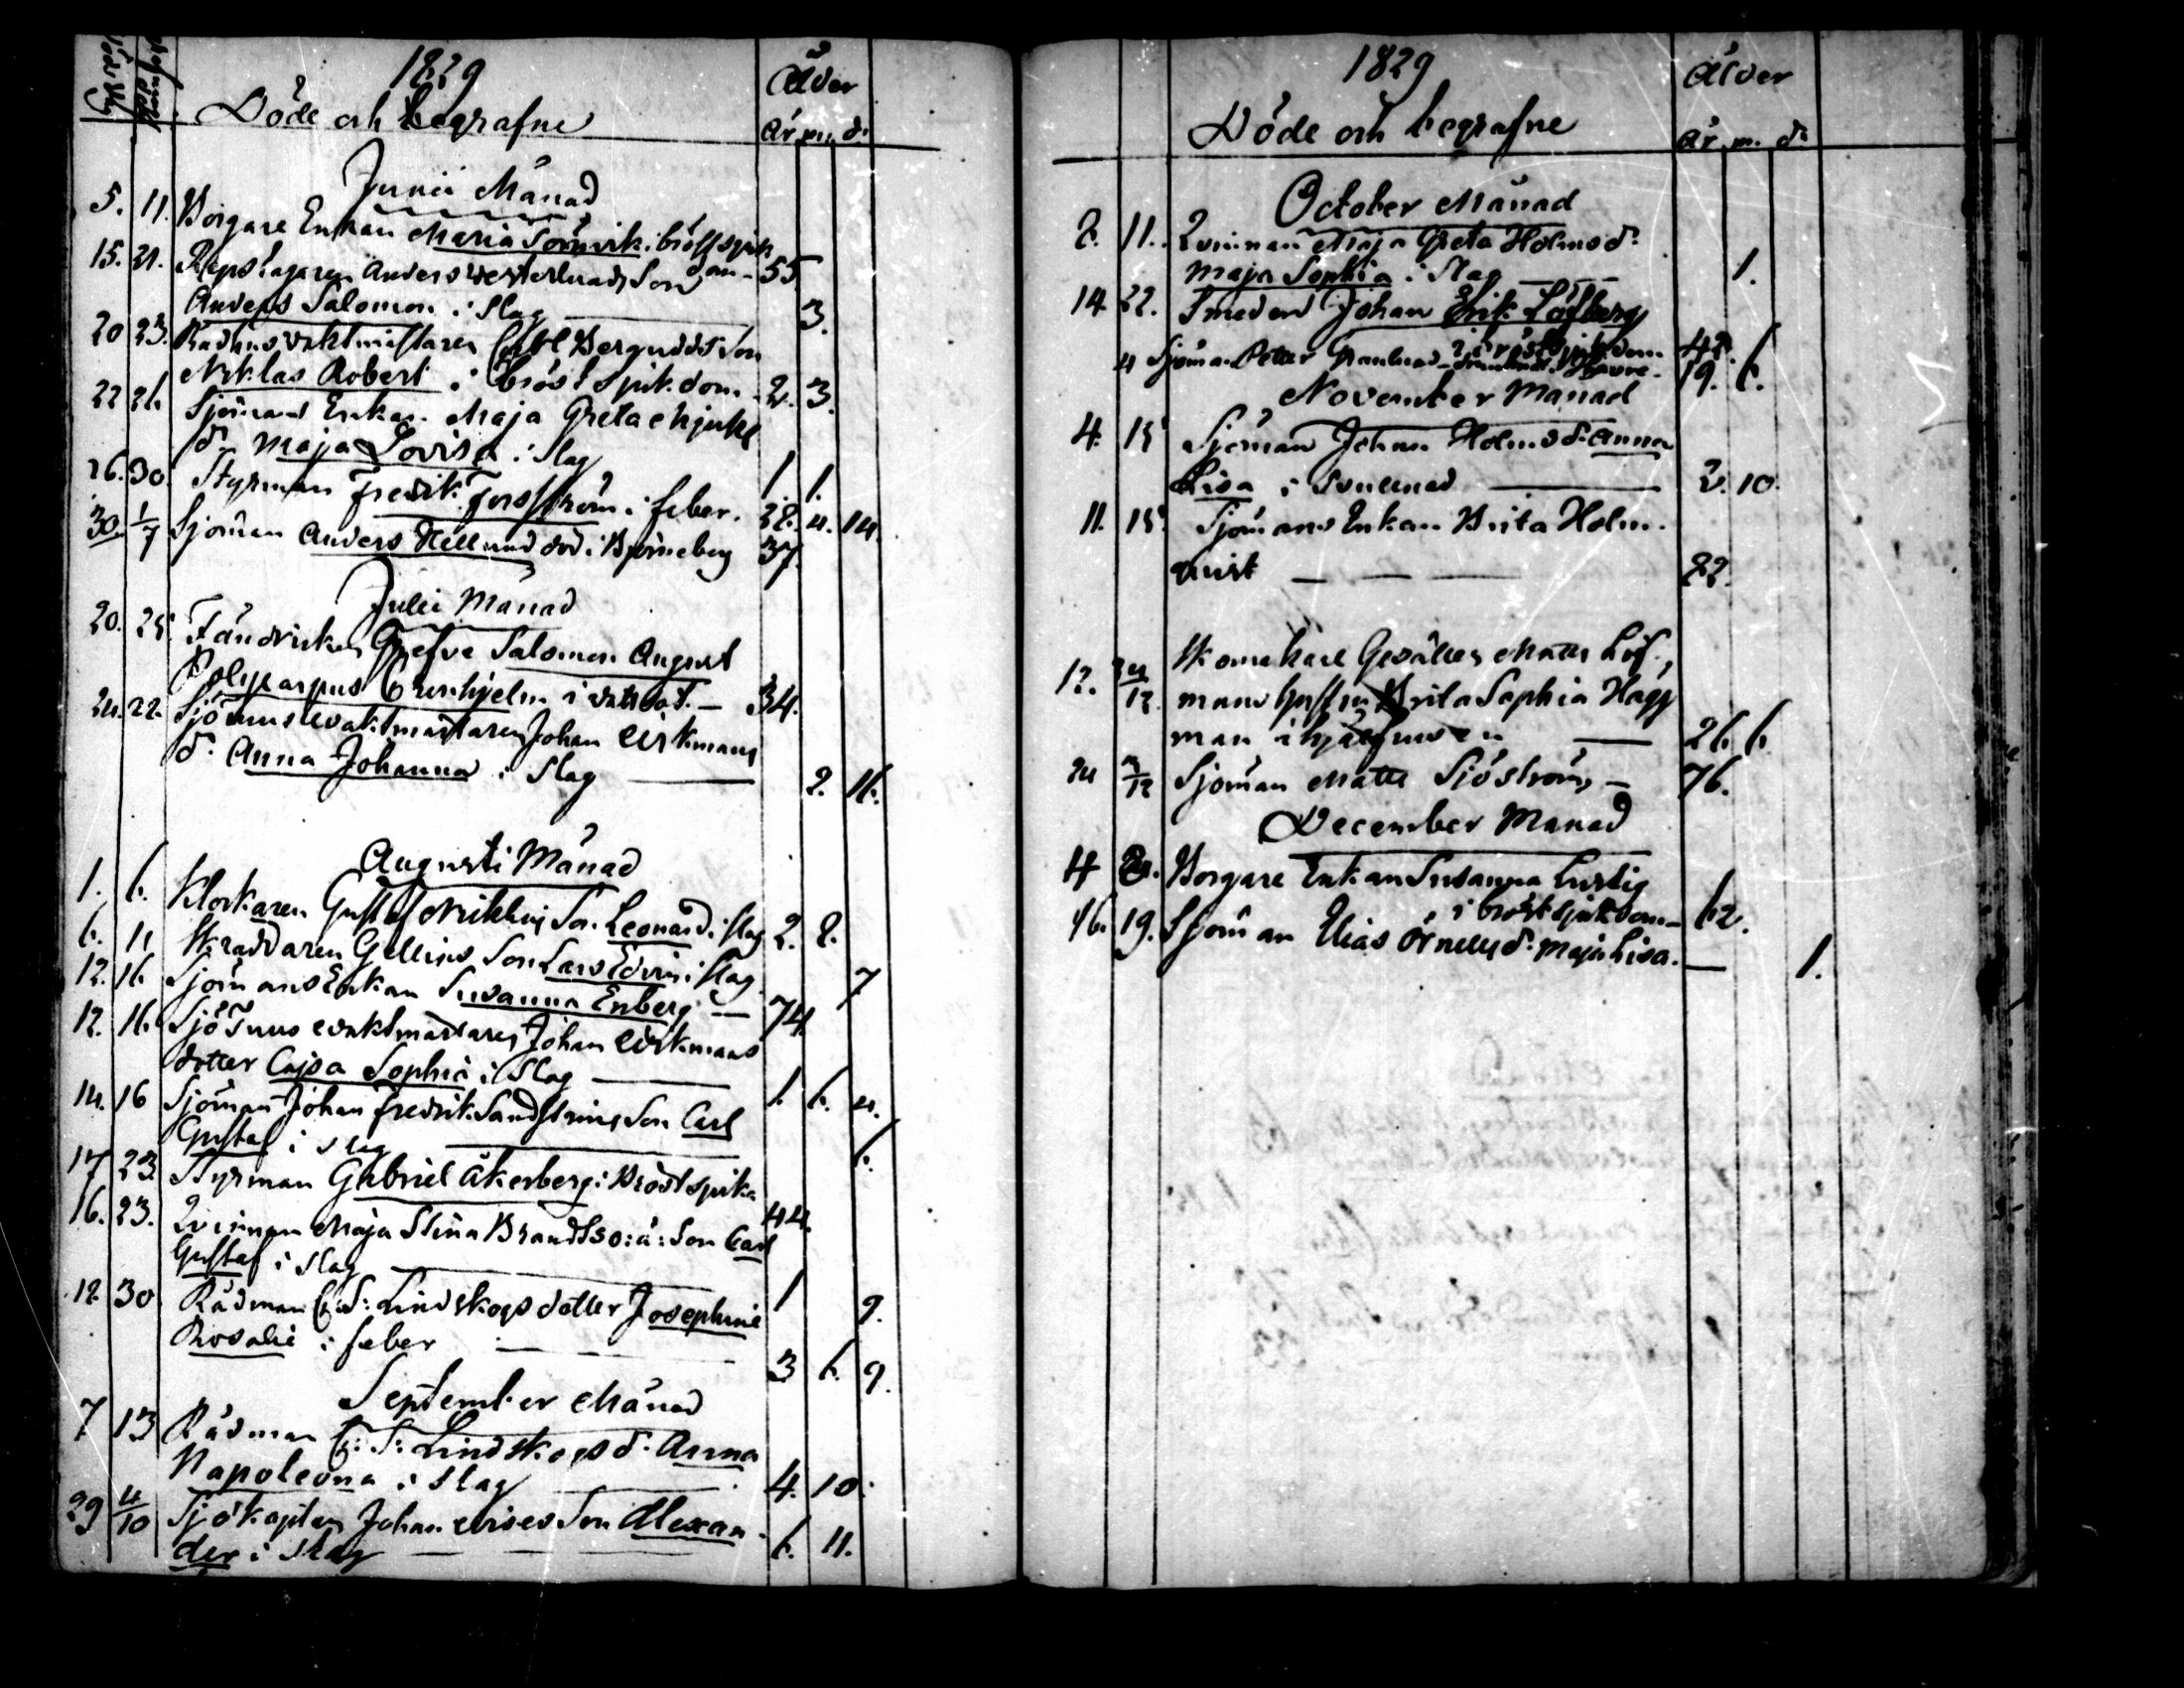 1829
Döde och begrafne
Ålder
År. m. d.
Junii Månad
5. 11. Borgare Enkan Maria Sörnvik i bröstsjuk
dom - 55
15. 21. Repslagaren Anders Westerlunds Son
Anders Salomon i Slag 3.
20 23. Rådhusvaktmästaren Berguddt Son
Niklas Robert i bröstsjukdom - 2. 3.
22 26 Sjömans Enkan Maja Greta
d. Maja Lovisa i Slag 1 1.
26. 30. Styrman Fredrik Forsström i feber. 28. 4. 14.
30. 1/7 Sjöman Anders Hellund död i Björneborg 37.
Julii Månad
20. 25. Fändriken Grefve Salomon August
Polycarpus Creuhjelm i - 34.
24. 22. Sjötullsvaktmästaren Johan Wikmans
d. Anna Johanna i Slag 2. 16.
Augusti Månad
1. 6. Klockaren Gustaf Son Leonard i slag 2. 8.
6. 11 Skraddaren Gellins Son Lars Edvin i slag. 7
12. 16 Sjömans Enkan Susanna Enberg — 74.
12. 16. Sjötulls vaktmästaren Johan Wikmans
dotter Cajsa Sophia i Slag 1. 6. 4.
14. 16 Sjöman Johan Fredrik Sandströms Son Carl
Gustaf i slag 6.
17 23. Styrman Gabriel Åkerberg i Bröstsjuk.
44.
16. 23. Qvinnan Maja Stina Brandts o: ä: Son Carl
Gustaf i Slag 1 9.
12 30 Rådman Lindskogs dotter Josephine
Rosalie i feber 3 6. 9.
September Månad
7 13 Rådman Lindskogs d. Anna
Napoleona i Slag 4. 10.
29 4/10 Sjökapten Johan Son Alexan-
der i Slag 6. 11.
1829
Döde och begrafne
Ålder
År. m. d.
October Månad
8. 11. Qvinnan Maja Greta Holms d.
Maja Sophia i Slag 1.
14. 22. Smeden Johan Erik Löfberg
i bröstsjukdom 48.
4 Sjöman Petter Granlund - 19. 6.
November Månad
4. 15 Sjöman Johan Holms d. Anna
Lisa i Svullnad 2. 10.
11. 15. Sjömans Enkan Brita Holm.
qvist 82.
12. /12. Skomakare Gesällen Matts Löf,
mans hustru Brita Sophia Hägg
man ihjälfrusen 26. 6.
24 /12 Sjöman Matts Sjöström, — 76.
December Månad
4 Borgare Enkan Susanna Lustig
i bröstsjukdom - 62.
16. 19. Sjöman Elias Örnells d. Maja Lisa. — 1.